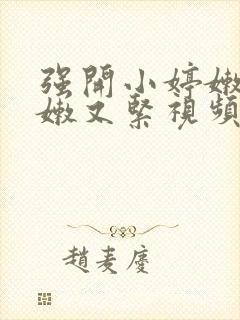 强開小婷嫩
嫩又緊視頻
趙麦慶